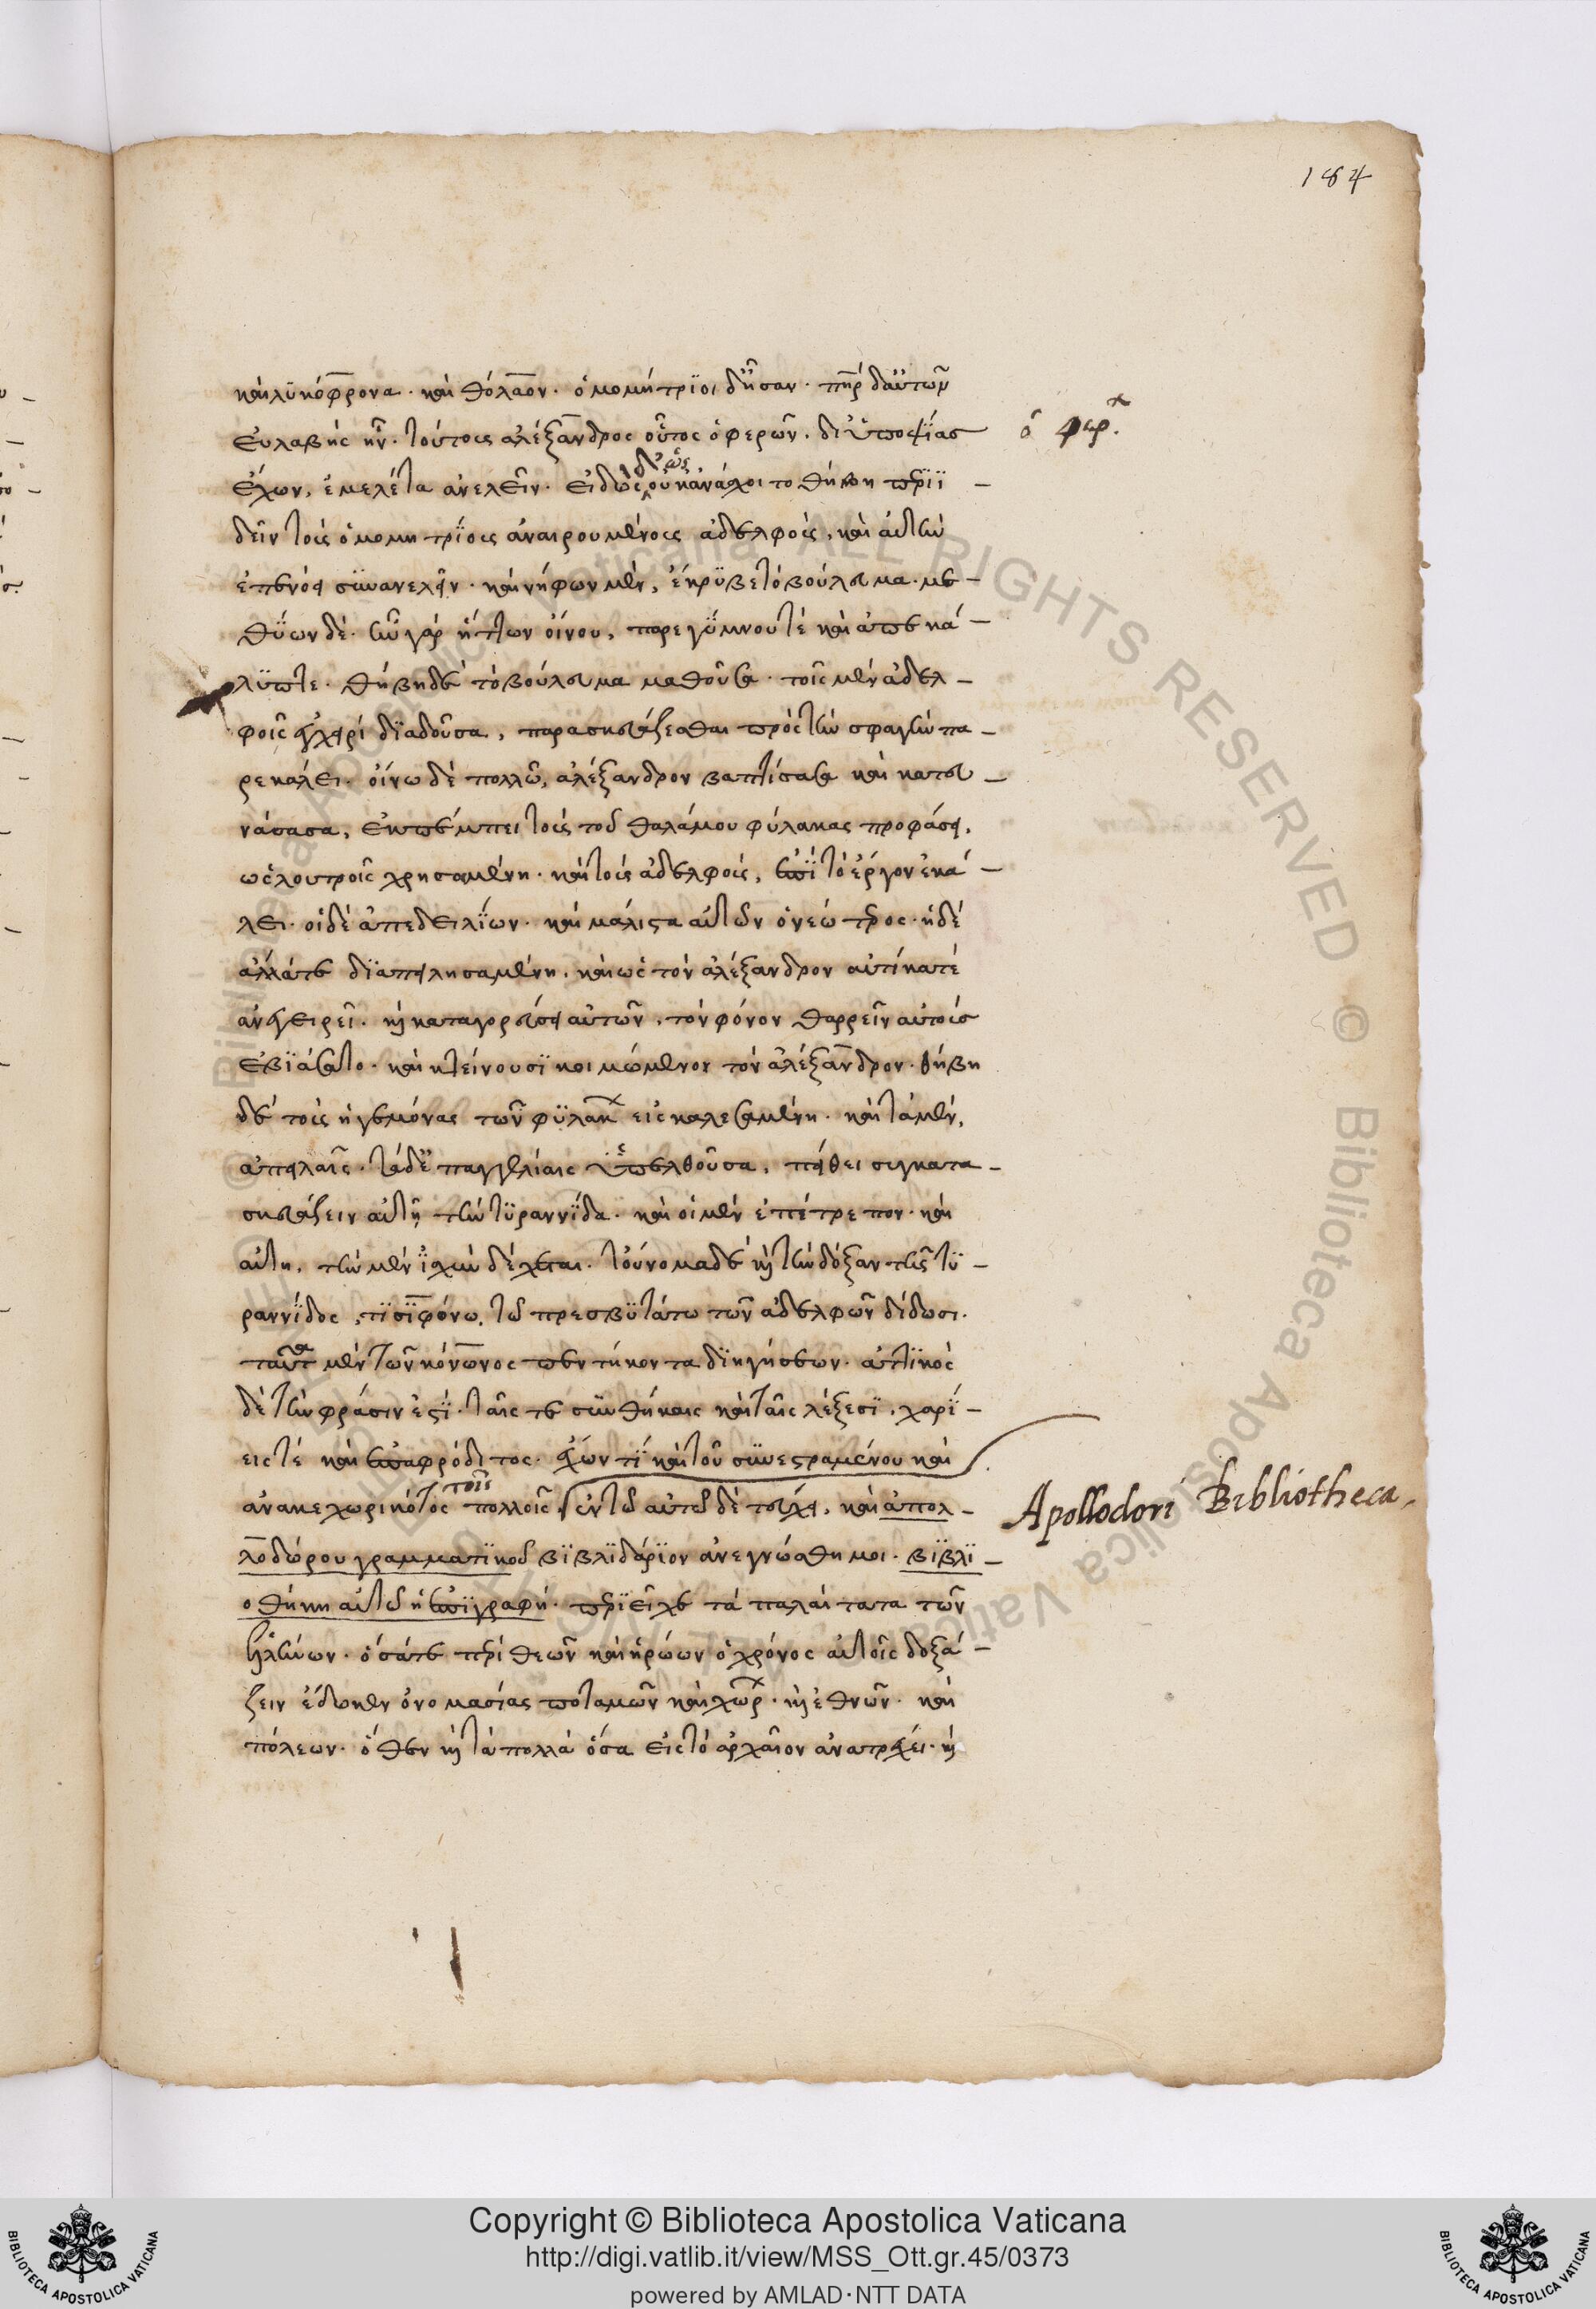 184
καὶ λυκόφρονα· καὶ θόλαον· ὁμομήτριοι δ' ἦσαν· πηρ δ' αὐτῶν
εὐλαβὴς ἦν· τούτοις ἀλέξανδρος οὗτος ὁ φερῶν· δι' ὑποψίας
ὁ φερ
ἔχων, ἐμελέτα ἀνελεῖν· εἰδὼς δ' ὡς οὐκ ἀνάσχοιτο θήβη περιϊ
δεῖν τοὺς ὁμομητρίους ἀναιρουμένους ἀδελφοὺς, καὶ αὐτὴν
ἐπενόει συνανελεῖν· καὶ νήφων μὲν, ἔκρυβε τὸ βούλευμα· με
θύων δὲ· ἦν γὰρ ἥττων οἴνου, παρεγύμνου τὲ καὶ ἀπεκά
λυπτε· θήβη δὲ τὸ βούλευμα μαθοῦσα· τοῖς μὲν ἀδελ
φοῖς ἐγχειρί διαδοῦσα, παρασκευάζεσθαι πρὸς τὴν σφαγὴν πα
ρεκάλει· οἴνω δὲ πολλῶ, ἀλέξανδρον βαπτίσασα καὶ κατευ
νάσασα, ἐκπέμπει τοὺς τοῦ θαλάμου φύλακας προφάσει,
ὡς λουτροῖς χρησαμένη· καὶ τοὺς ἀδελφοὺς, ἐπὶ τὸ ἔργον ἐκά
λει· οἱ δὲ ἀπεδειλίων· καὶ μάλιστα αὐτῶν ὁ νεώτερος· ἡ δὲ
ἄλλά τε διαπειλησαμένη, καὶ ὡς τὸν ἀλέξανδρον αὐτίκα τέ
ἀνεγειρεῖ· καὶ καταγορεύσει αὐτῶν, τὸν φόνον θαρρεῖν αὐτοὺς
ἐβιάσατο· καὶ κτείνουσι κοιμώμενον τὸν ἀλέξανδρον· θήβη
δὲ τοὺς ἡγεμόνας τῶν φυλακ εἰσκαλεσαμένη· καὶ τὰ μὲν,
ἀπειλαῖς· τὰ δ' ἐπαγγελίαις ὑπελθοῦσα, πείθει συγκατα
σκευάζειν αὐτῆ τὴν τυραννίδα· καὶ οἱ μὲν ἐπέτρεπον· καὶ
αὐτη, τὴν μὲν ἰσχὺν δέχεται· τοὔνομα δὲ καὶ τὴν δόξαν τῆς τυ
ραννίδος, τισιφόνω, τῶ πρεσβυτάτω τῶν ἀδελφῶν δίδωσι·
ταῦτα μὲν τῶν κόνωνος πεντήκοντα διηγήσεων· ἀττικὸς
δὲ τὴν φράσιν ἐστί· ταῖς τε συνθήκαις καὶ ταῖς λέξεσι, χαρί
εις τὲ καὶ ἐπαφρόδιτος· ἔχων τί καὶ τοῦ συνεστραμένου καὶ
ἀνακεχωρηκότος τοῖς πολλοῖς· ἐν τῶ αὐτῶ δὲ τεύχει, καὶ ἀπολ
Apollodori Bibliotheca.
λοδώρου γραμματικοῦ βιβλιδάριον ἀνεγνώσθη μοι· βιβλι
οθήκη αὐτῶ ἡ ἐπιγραφή· περιεῖχε τὰ παλαίτατα τῶν
ἑλλήνων· ὅσά τε περὶ θεῶν καὶ ἡρώων ὁ χρόνος αὐτοῖς δοξά
ζειν ἔδωκεν ὀνομασίας ποταμῶν καὶ χωρ· καὶ ἐθνῶν· καὶ
πόλεων· ὅθεν καὶ τὰ πολλὰ ὅσα εἰς τὸ ἀρχαῖον ἀνατρέχει· καὶ
Copyright © Biblioteca Apostolica Vaticana
http://digi.vatlib.it/view/MSS_Ott.gr.45/0373
powered by AMLAD·NTT DATA
BIBLIOTECA APOSTOLICA VATICANA
BIBLIOTECA APOSTOLICA VATICANA